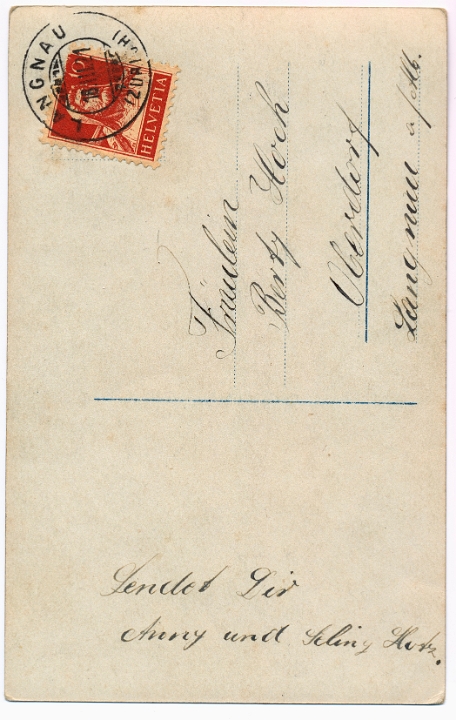 LANGNAU
(ZÜRICH)
10
HELVETIA
Fräulein
Berty Hoch
Oberdorf
Langnau a/Alb.
Sendet Dir
Anny und Seliny Hotz.